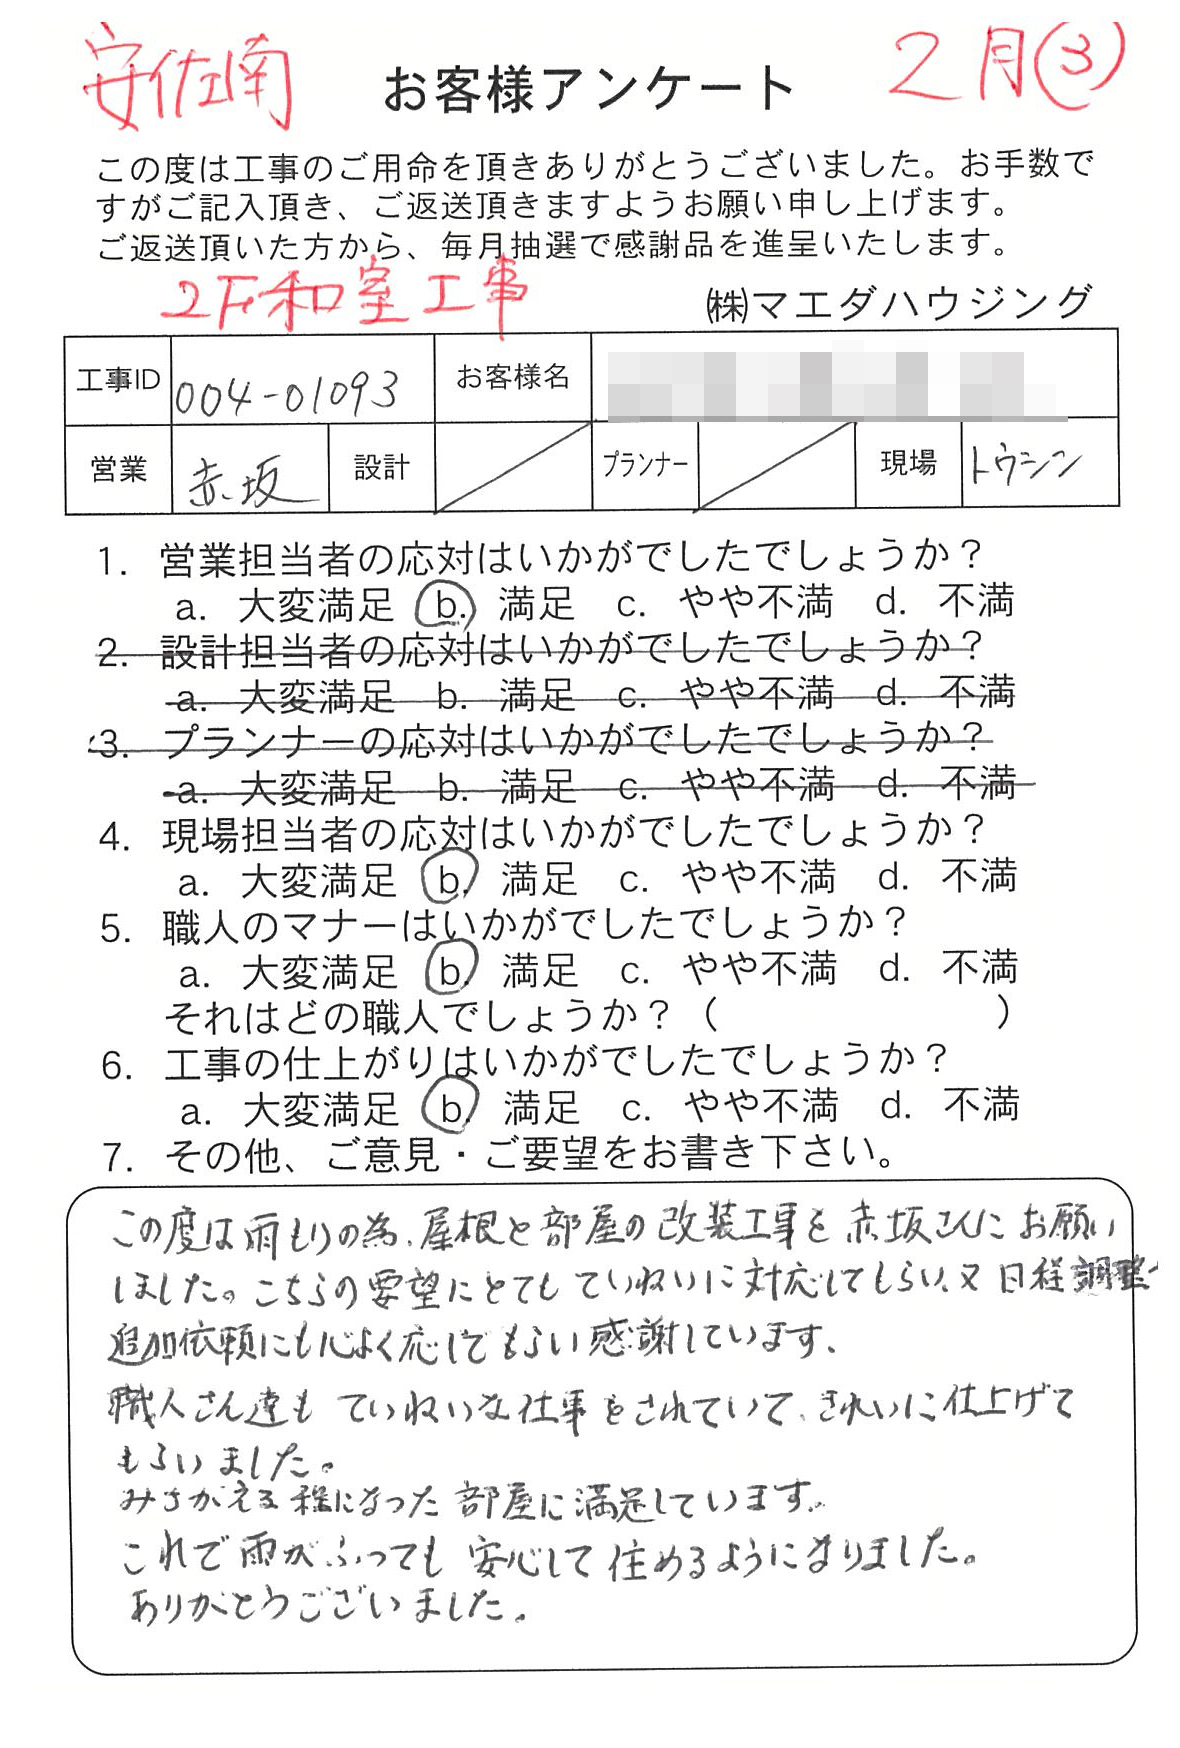 安佐南
2月(3)
お客様アンケート
この度は工事のご用命を頂きありがとうございました。お手数で
すがご記入頂き、ご返送頂きますようお願い申し上げます。
ご返送頂いた方から、毎月抽選で感謝品を進呈いたします。
2F和室工事
㈱マエダハウジング
工事ID 004-01093 お客様名
営業 赤坂 設計 プランナー 現場 トウシン
1. 営業担当者の応対はいかがでしたでしょうか？
a. 大変満足 b. 満足 c. やや不満 d. 不満
2. 設計担当者の応対はいかがでしたでしょうか？
a. 大変満足 b. 満足 c. やや不満 d. 不満
3. プランナーの応対はいかがでしたでしょうか？
a. 大変満足 b. 満足 c. やや不満 d. 不満
4. 現場担当者の応対はいかがでしたでしょうか？
a. 大変満足 b. 満足 c. やや不満 d. 不満
5. 職人のマナーはいかがでしたでしょうか？
a. 大変満足 b. 満足 c. やや不満 d. 不満
それはどの職人でしょうか？（ ）
6. 工事の仕上がりはいかがでしたでしょうか？
a. 大変満足 b. 満足 c. やや不満 d. 不満
7. その他、ご意見・ご要望をお書き下さい。
この度は雨もりの為、屋根と部屋の改装工事を赤坂さんにお願い
しました。こちらの要望にとてもていねいに対応してもらい、又日程調整、
追加依頼にも心よく応じてもらい感謝しています。
職人さん達もていねいな仕事をされていて、きれいに仕上げて
もらいました。
みさがえる程になった部屋に満足しています。
これで雨がふっても安心して住めるようになりました。
ありがとうございました。